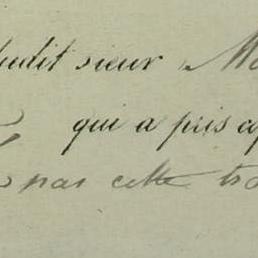 ludit sieur Mo
qui a pris co
par cette tra